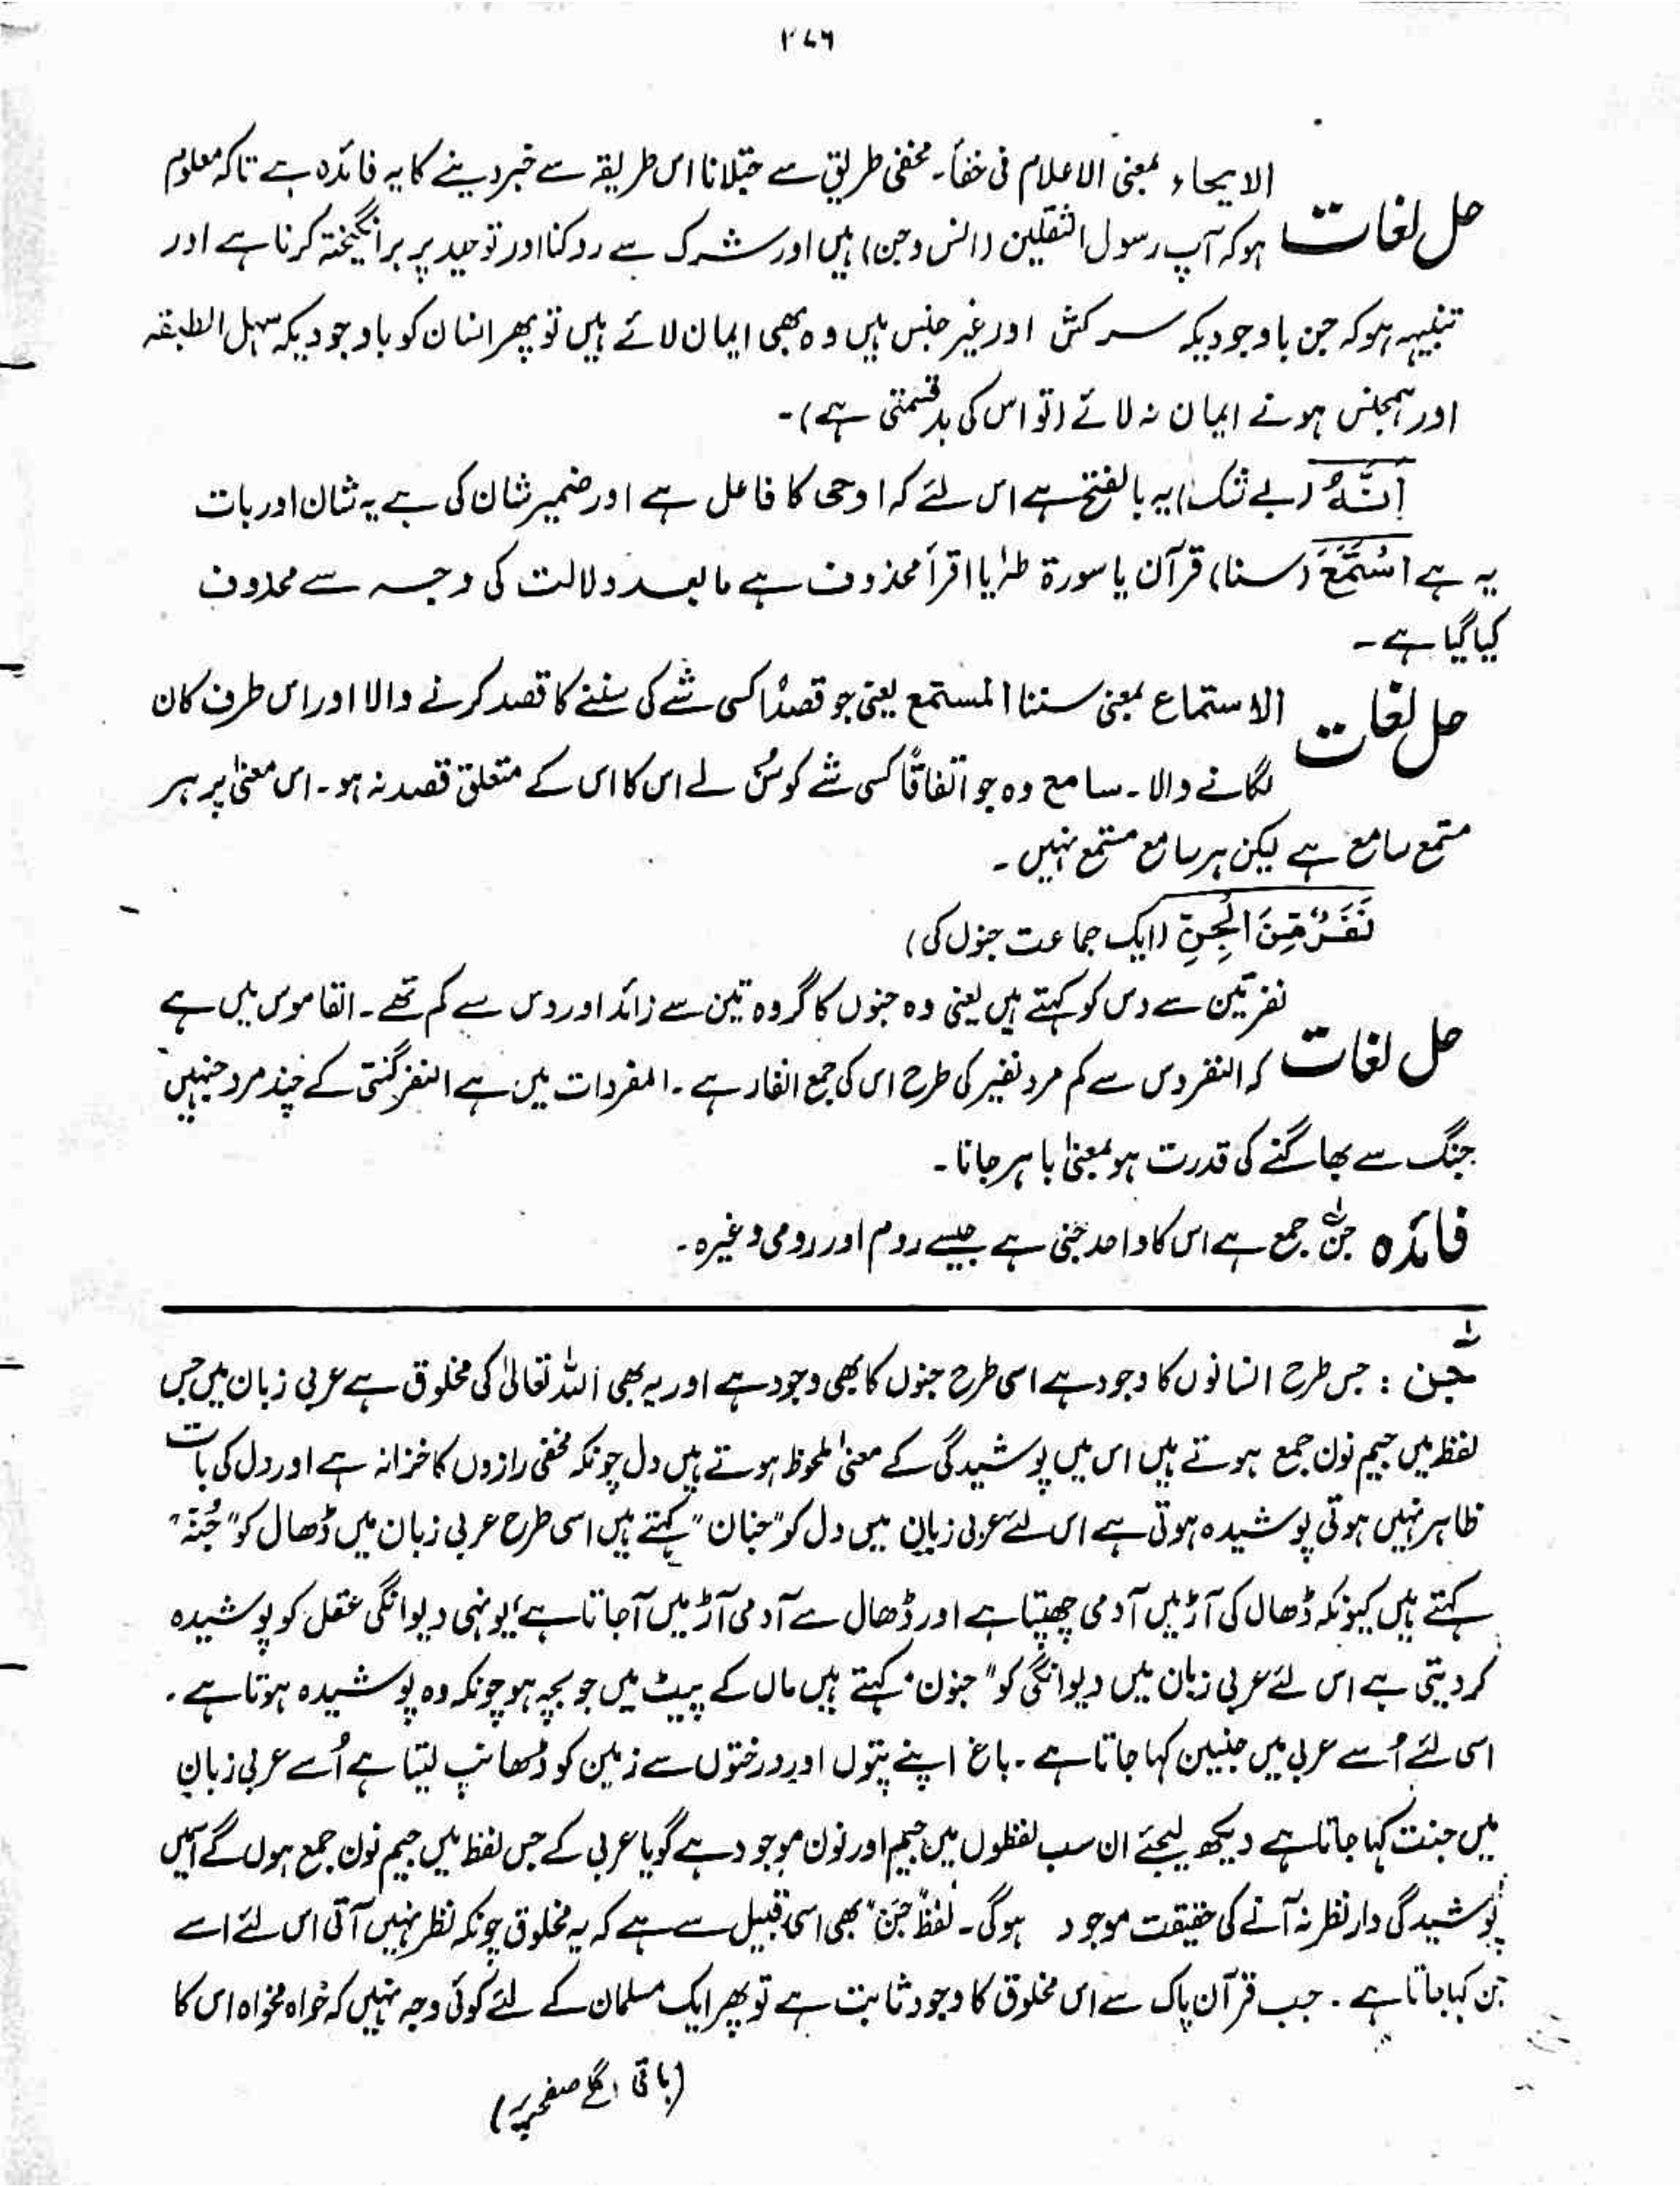 ۲۷۶
الایحاء بمعنی الاعلام فی خفأ۔ مخفی طریق سے جتلانا اس طریقہ سے خبر دینے کا یہ فائدہ ہے تاکہ معلوم
حل لغات
ہو کہ آپ رسول الثقلین (انس و جن) ہیں اور شرک سے روکنا اور توحید پر برانگیختہ کرنا ہے اور
تنبیہہ ہو کہ جن باوجودیکہ سرکش اور غیر جنس ہیں وہ بھی ایمان لائے ہیں تو پھر انسان کو باوجودیکہ سہل الطبقہ
اور ہمجنس ہونے ایمان نہ لائے (تو اس کی بدقسمتی ہے)۔
اَنَّهُ (بے شک) یہ بالفتح ہے اس لئے کہ اوحی کا فاعل ہے اور ضمیر شان کی ہے یہ شان اور بات
یہ ہے اسْتَمَعَ (سنا) قرآن یا سورۃ طٰہٰ یا اقرأ محذوف ہے مابعد دلالت کی وجہ سے محذوف
کیا گیا ہے۔
حل لغات
الاستماع بمعنی سننا المستمع یعنی جو قصدًا کسی شے کی سننے کا قصد کرنے والا اور اس طرف کان
لگانے والا۔ سامع وہ جو اتفاقًا کسی شے کو سُن لے اس کا اس کے متعلق قصد نہ ہو۔ اس معنیٰ پر ہر
مستمع سامع ہے لیکن ہر سامع مستمع نہیں۔
نَفَرٌ مِّنَ الْجِنِّ (ایک جماعت جنوں کی)
نفر تین سے دس کو کہتے ہیں یعنی وہ جنوں کا گروہ تین سے زائد اور دس سے کم تھے۔ القاموس میں ہے
حل لغات
کہ النفر دس سے کم مرد نفیر کی طرح اس کی جمع انفار ہے۔ المفردات میں ہے النفر گنتی کے چند مرد جنہیں
جنگ سے بھاگنے کی قدرت ہو بمعنیٰ باہر جانا۔
فائدہ جنّ جمع ہے اس کا واحد جنی ہے جیسے روم اور رومی وغیرہ۔
جن : جس طرح انسانوں کا وجود ہے اسی طرح جنوں کا بھی وجود ہے اور یہ بھی اللہ تعالیٰ کی مخلوق ہے عربی زبان میں جس
لفظ میں جیم نون جمع ہوتے ہیں اس میں پوشیدگی کے معنیٰ ملحوظ ہوتے ہیں دل چونکہ مخفی رازوں کا خزانہ ہے اور دل کی بات
ظاہر نہیں ہوتی پوشیدہ ہوتی ہے اس لئے عربی زبان میں دل کو "جنان" کہتے ہیں اسی طرح عربی زبان میں ڈھال کو "جُنۃ"
کہتے ہیں کیونکہ ڈھال کی آڑ میں آدمی چھپتا ہے اور ڈھال سے آدمی آڑ میں آجاتا ہے؛ یونہی دیوانگی عقل کو پوشیدہ
کر دیتی ہے اس لئے عربی زبان میں دیوانگی کو "جنون" کہتے ہیں ماں کے پیٹ میں جو بچہ ہو چونکہ وہ پوشیدہ ہوتا ہے۔
اسی لئے اُسے عربی میں جنین کہا جاتا ہے۔ باغ اپنے پتوں اور درختوں سے زمین کو ڈھانپ لیتا ہے اُسے عربی زبان
میں جنت کہا جاتا ہے دیکھ لیجئے ان سب لفظوں میں جیم اور نون موجود ہے گویا عربی کے جس لفظ میں جیم نون جمع ہوں گے اسمیں
پوشیدگی دار نظر نہ آنے کی حقیقت موجود ہوگی۔ لفظ "جن" بھی اسی قبیل سے ہے کہ یہ مخلوق چونکہ نظر نہیں آتی اس لئے اسے
جن کہا جاتا ہے۔ جب قرآن پاک سے اس مخلوق کا وجود ثابت ہے تو پھر ایک مسلمان کے لئے کوئی وجہ نہیں کہ خواہ مخواہ اس کا
(باقی اگلے صفحہ پر)